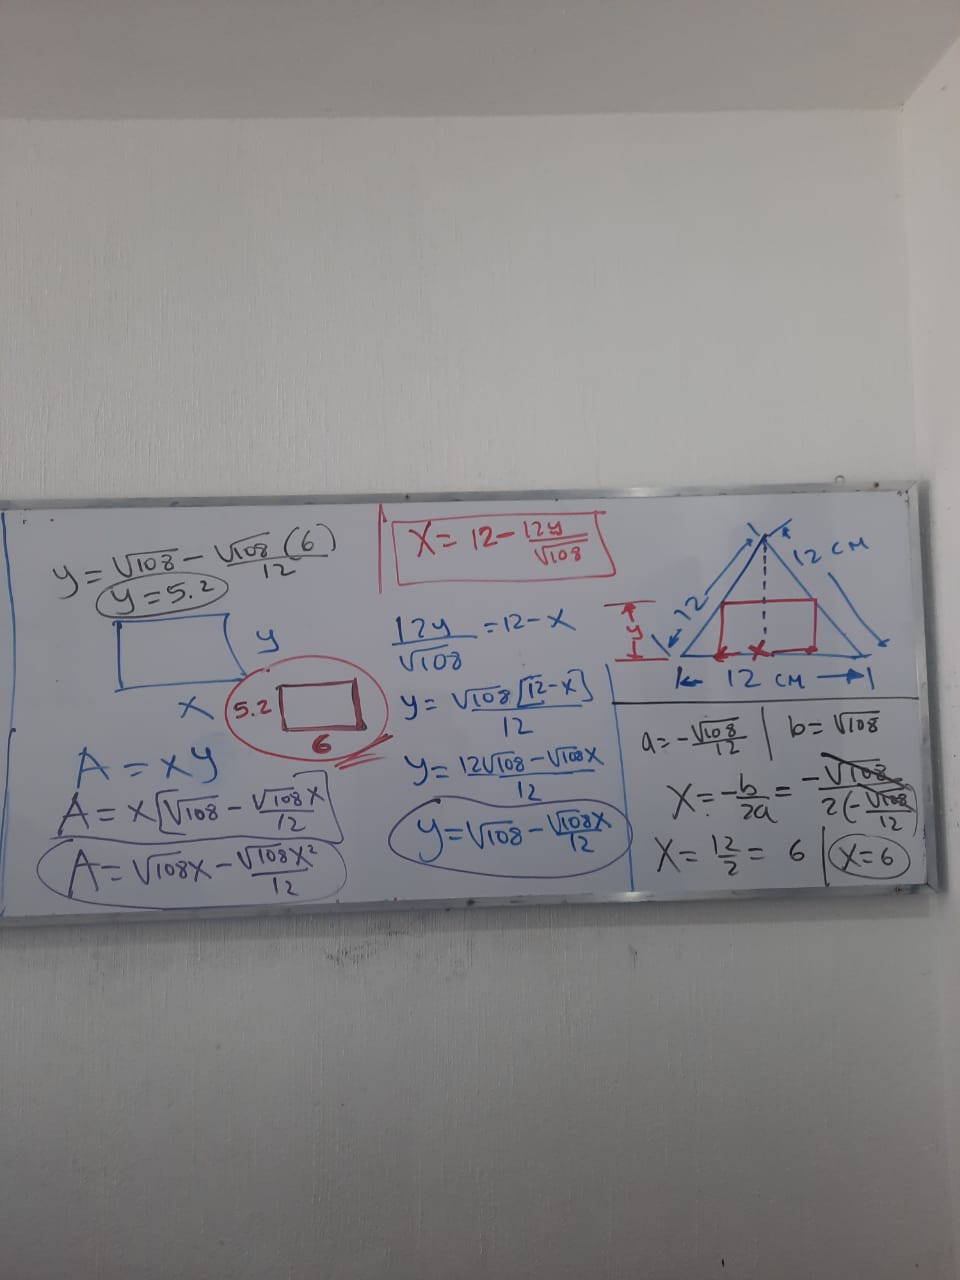 y = √108 - √108 (6) / 12
y = 5.2
y
x
5.2
6
A = xy
A = x[√108 - √108 x / 12]
A = √108x - √108x² / 12
x = 12 - 12y / √108
12y / √108 = 12 - x
y = √108 [12 - x] / 12
y = 12√108 - √108x / 12
y = √108 - √108x / 12
12
12 cm
y
x
12 cm
a = - √108 / 12 | b = √108
x = - b / 2a = - √108 / 2(- √108 / 12)
x = 12 / 2 = 6 | x = 6